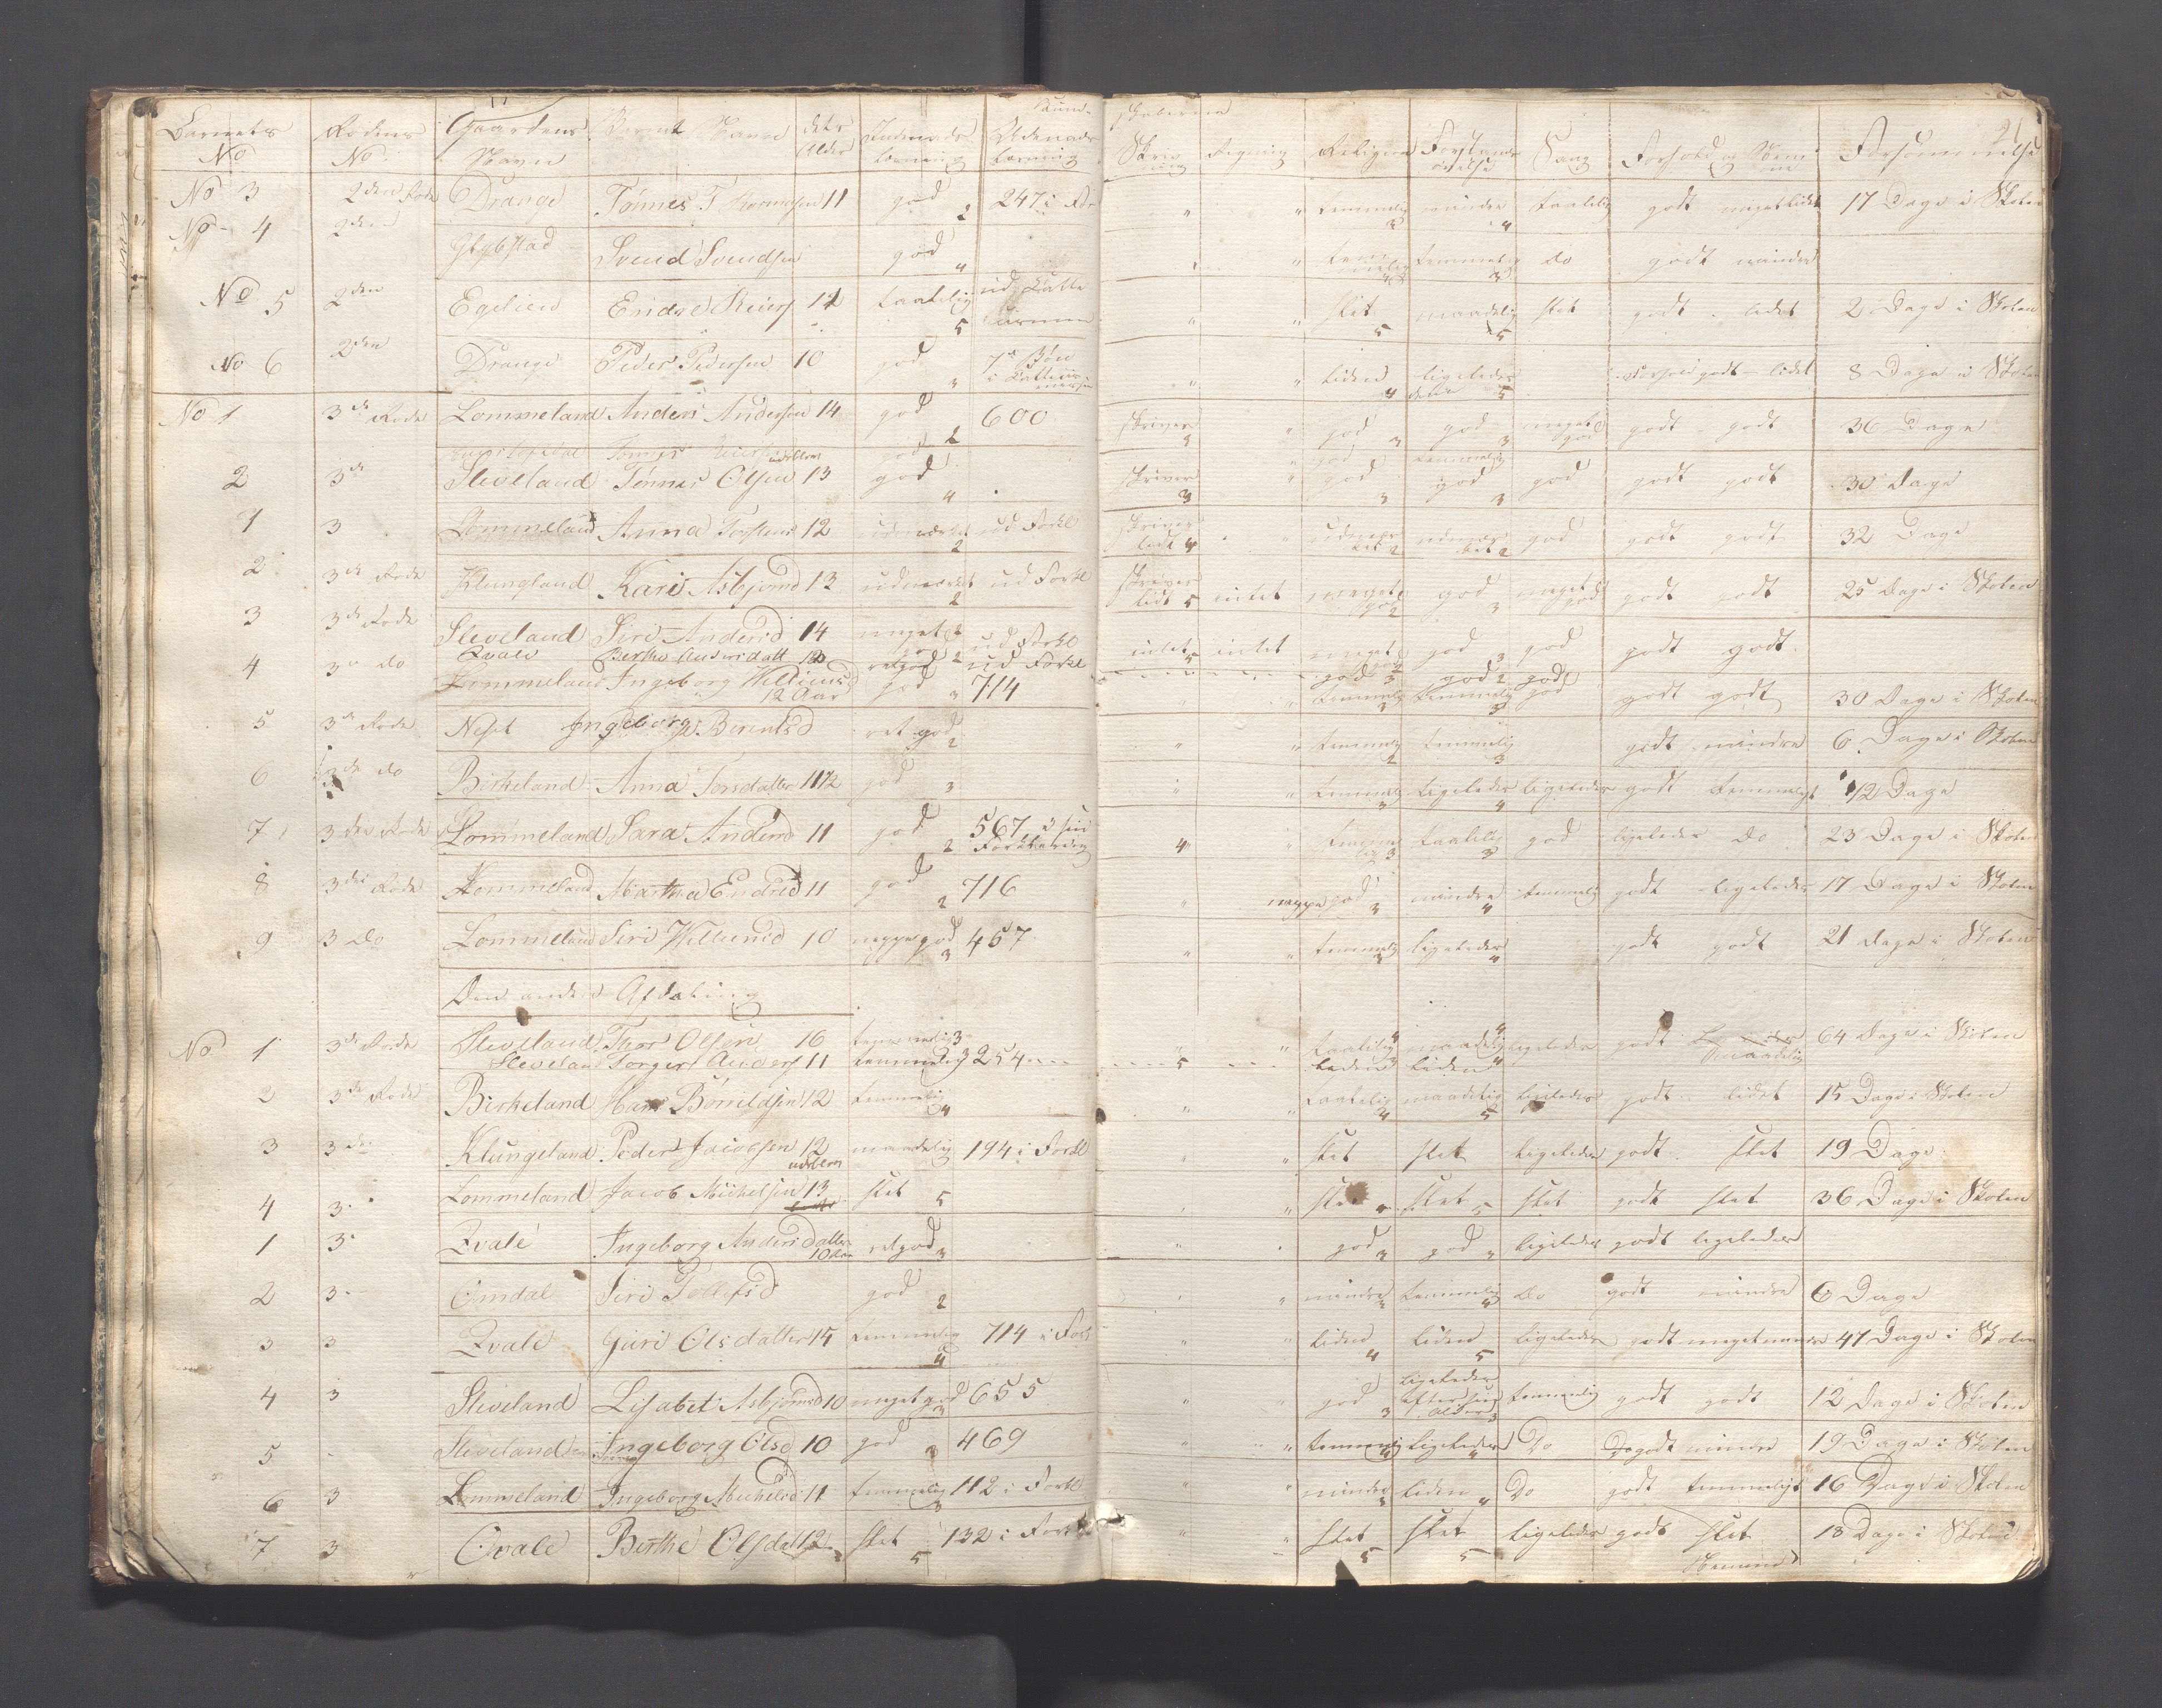 Barnets No Rodens No. Gaardens Navn Barnets Navn dets Alder Indenads Læsning Udenads Læsning Skrivning Regning Religion Forstands øvelse Sang Forhold og Nemme Forsømmelse 21
No 3 2den Rode Drange Tønnes T 11 god 2 247 i For " " temmelig 3 mindre 4 taalelig godt meget lidet 17 Dage i Skolen
No 4 2den Svend Svendsen god 4 " temmelig temmelig 3 do godt mindre
No 5 2den Egelien Endre Reiers 12 taalelig 5 ud " " slet 5 maadelig 5 slet godt lidet 2 Dage i Skolen
No 6 2den Drange Peder Pedersen 10 god " " liden 4 ligeledes 5 godt lidet 8 Dage i Skolen
No 1 3de Rode Lommeland Anders Andersen 14 god 2 600 skriver " god 3 god 3 meget god godt godt 36 Dage
2 3de Sleveland Tønnes Olsen 13 god 4 skriver 3 " god 3 god 3 god godt godt 30 Dage
1 3 Lommeland Anna 12 udmærket 2 ud Forkl skriver lidt 4 " udmærket 2 udmærket 2 god godt godt 32 Dage
2 3de Rode Klungland Kari Asbjornsd 13 udmærket 2 ud Forkl skriver lidt 5 intet meget god 2 god 3 meget god godt godt 25 Dage i Skolen
3 3de Rode Sleveland Siri Andersd 14 meget god 2 ud Forkl intet 5 intet meget god god 3 god godt godt
Qvale Berthe Andersdatt ret god ud Forkl god 3 god 2 god
4 3 do Lommeland Ingeborg Villiumsd 12 Aar god 3 714 " " temmelig 3 temmelig 3 god godt godt 30 Dage i Skolen
5 3de Rode Ingeborg Berentsd ret god 2 " " temmelig 2 temmelig 3 godt mindre 6 Dage i Skolen
6 3de do Birkeland Anna Torsdatter god 3 " " temmelig ligeledes 4 ligeledes godt temmeligt 12 Dage
7 3den Rode Lommeland Sara Andersd 11 god 2 567 i sin Forklaring 4 " temmelig 3 taalelig 3 god ligeledes do 23 Dage i Skolen
8 3de Rode Lommeland Martha Endresd 11 god 2 716 " neppe god 3 mindre 4 temmelig godt ligeledes 17 Dage i Skolen
9 3 do Lommeland Siri Villumsd 10 neppe god 3 457 " " temmelig 3 ligeledes 4 godt godt 21 dage i Skolen
Den anden Afdeling
No 1 3de Rode Sleveland Thor Olsen 16 temmelig 3 " " taalelig 4 maadelig 4 ligeledes godt maadelig 64 Dage i Skolen
Sleveland Torger Anders 11 temmelig 3 254 5 liden 4
2 3de Rode Birkeland Hans Børrildsen 12 temmelig 4 " " taalelig 4 maadelig 5 ligeledes godt lidet 15 Dage i Skolen
3 3de Klungeland Peder Jacobsen 12 maadelig 194 i Forkl " " slet slet ligeledes godt slet 19 Dage
4 3 Lommeland Jacob Michelsen 13 slet 5 " " slet slet 5 slet godt slet 36 Dage i Skolen
1 3 Qvale Ingeborg Andersdatter 10 Aar ret god 3 " god 3 god 3 ligeledes godt ligeledes
2 3 Omdal Siri Tollefsd god 2 " " mindre temmelig 4 do godt mindre 6 Dage
3 3 Qvale Guri Olsdatter 15 temmelig 4 714 i Forkl " " liden 4 liden 5 ligeledes godt meget mindre 47 Dage i Skolen
4 3 Sleveland Lisabet Asbjørnsd 10 meget god 3 655 " " god 3 ligeledes efter sin Alder 3 temmelig godt godt 12 Dage i Skolen
5 - Sleveland Ingeborg Olsd 10 god 3 469 " " temmelig 4 ligeledes 4 Do godt mindre 19 Dage i Skolen
6 3 Lommeland Ingeborg Michelsd 11 temmelig 3 112 i Forkl " " mindre 3 liden 4 Do godt temmeligt 16 Dage i Skolen
7 3 Qvale Berthe Olsdatt 12 slet 5 132 i Forkl " " slet 5 slet 5 ligeledes godt slet Nemme 18 Dage i Skolen